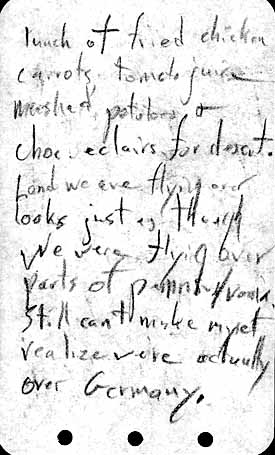 lunch of fried chicken
carrots, tomato juice
mashed potatoes &
choc. eclairs for desert.
Land we are flying over
looks just as though
we were flying over
parts of Pennsylvania.
Still can't make myself
realize we're actually
over Germany.